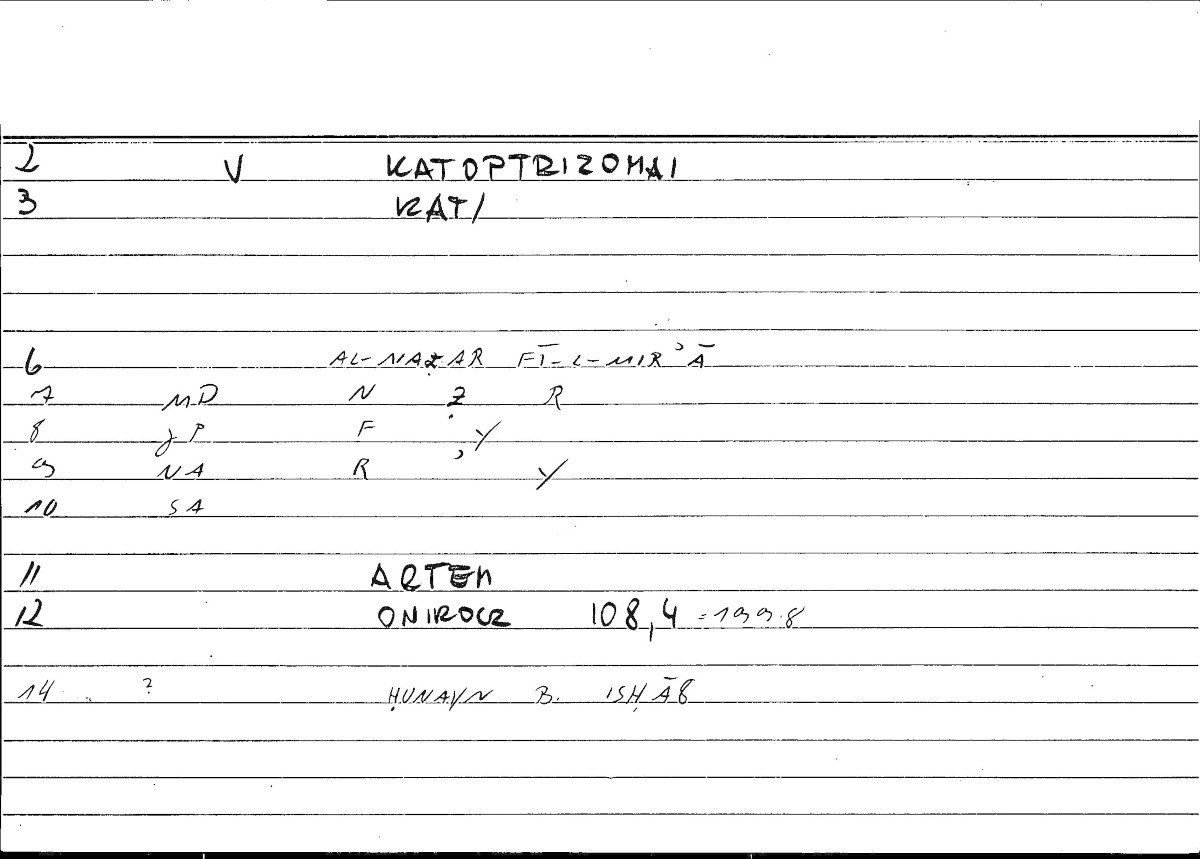 2 V KATOPTRIZOMAI
3 KAT/
6 AL-NAẒAR FĪ-L-MIRʾĀ
7 MD N Ẓ R
8 JP F ,Y
9 NA R ʾ Y
10 SA
11 ARTEM
12 ONIROCR 108,4 = 199.8
14 ? ḤUNAYN B. ISḤĀ8